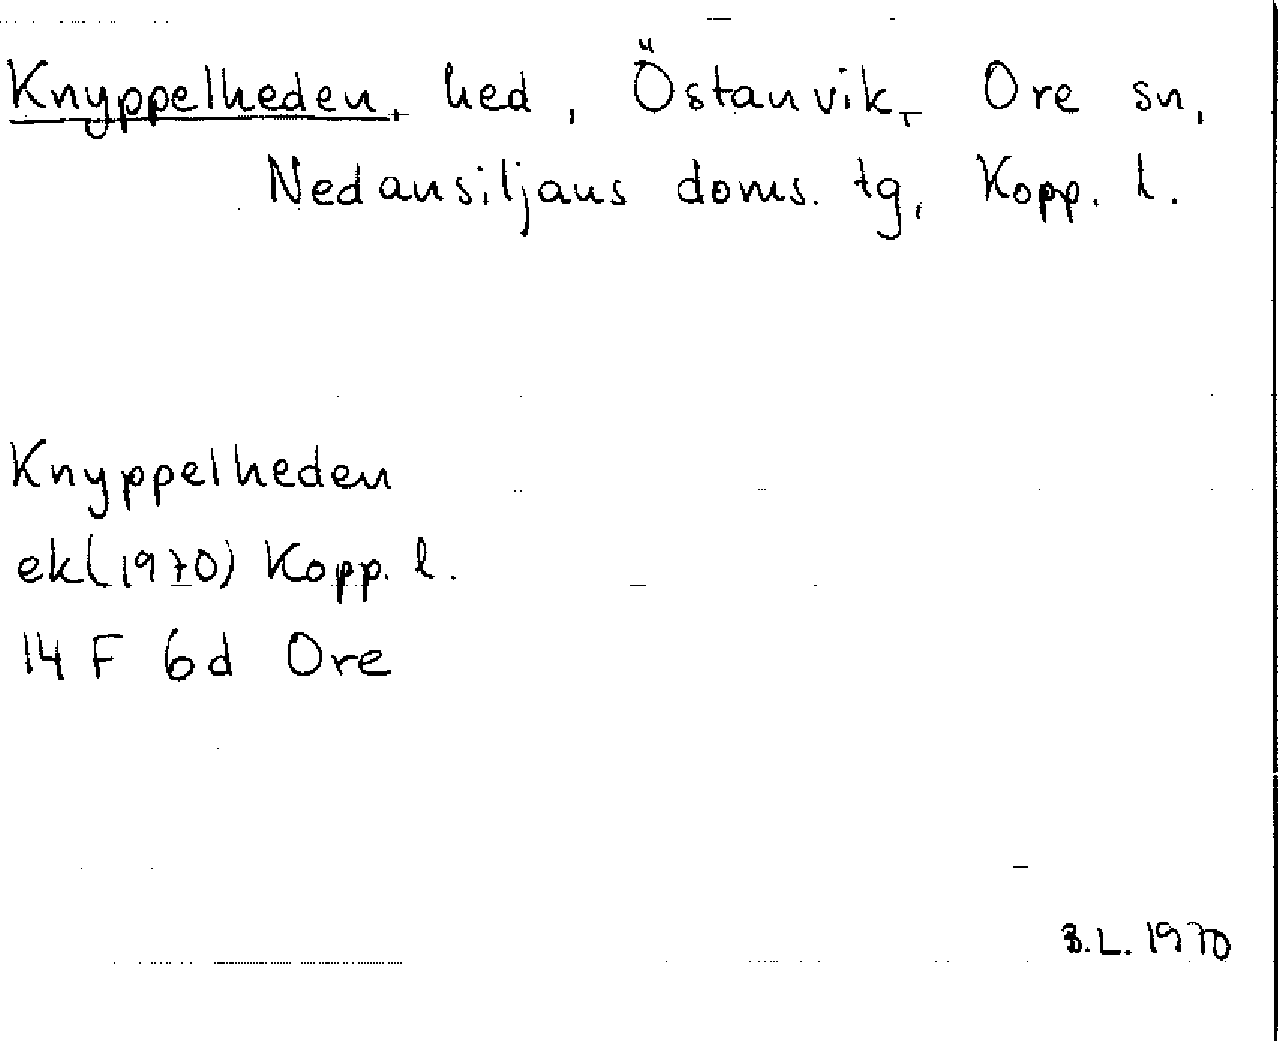 Knyppelheden, hed, Östanvik, Ore sn,
Nedansiljans doms. tg, Kopp. l.
Knyppelheden
ek(1970) Kopp. l.
14 F 6d Ore
B.L. 1970